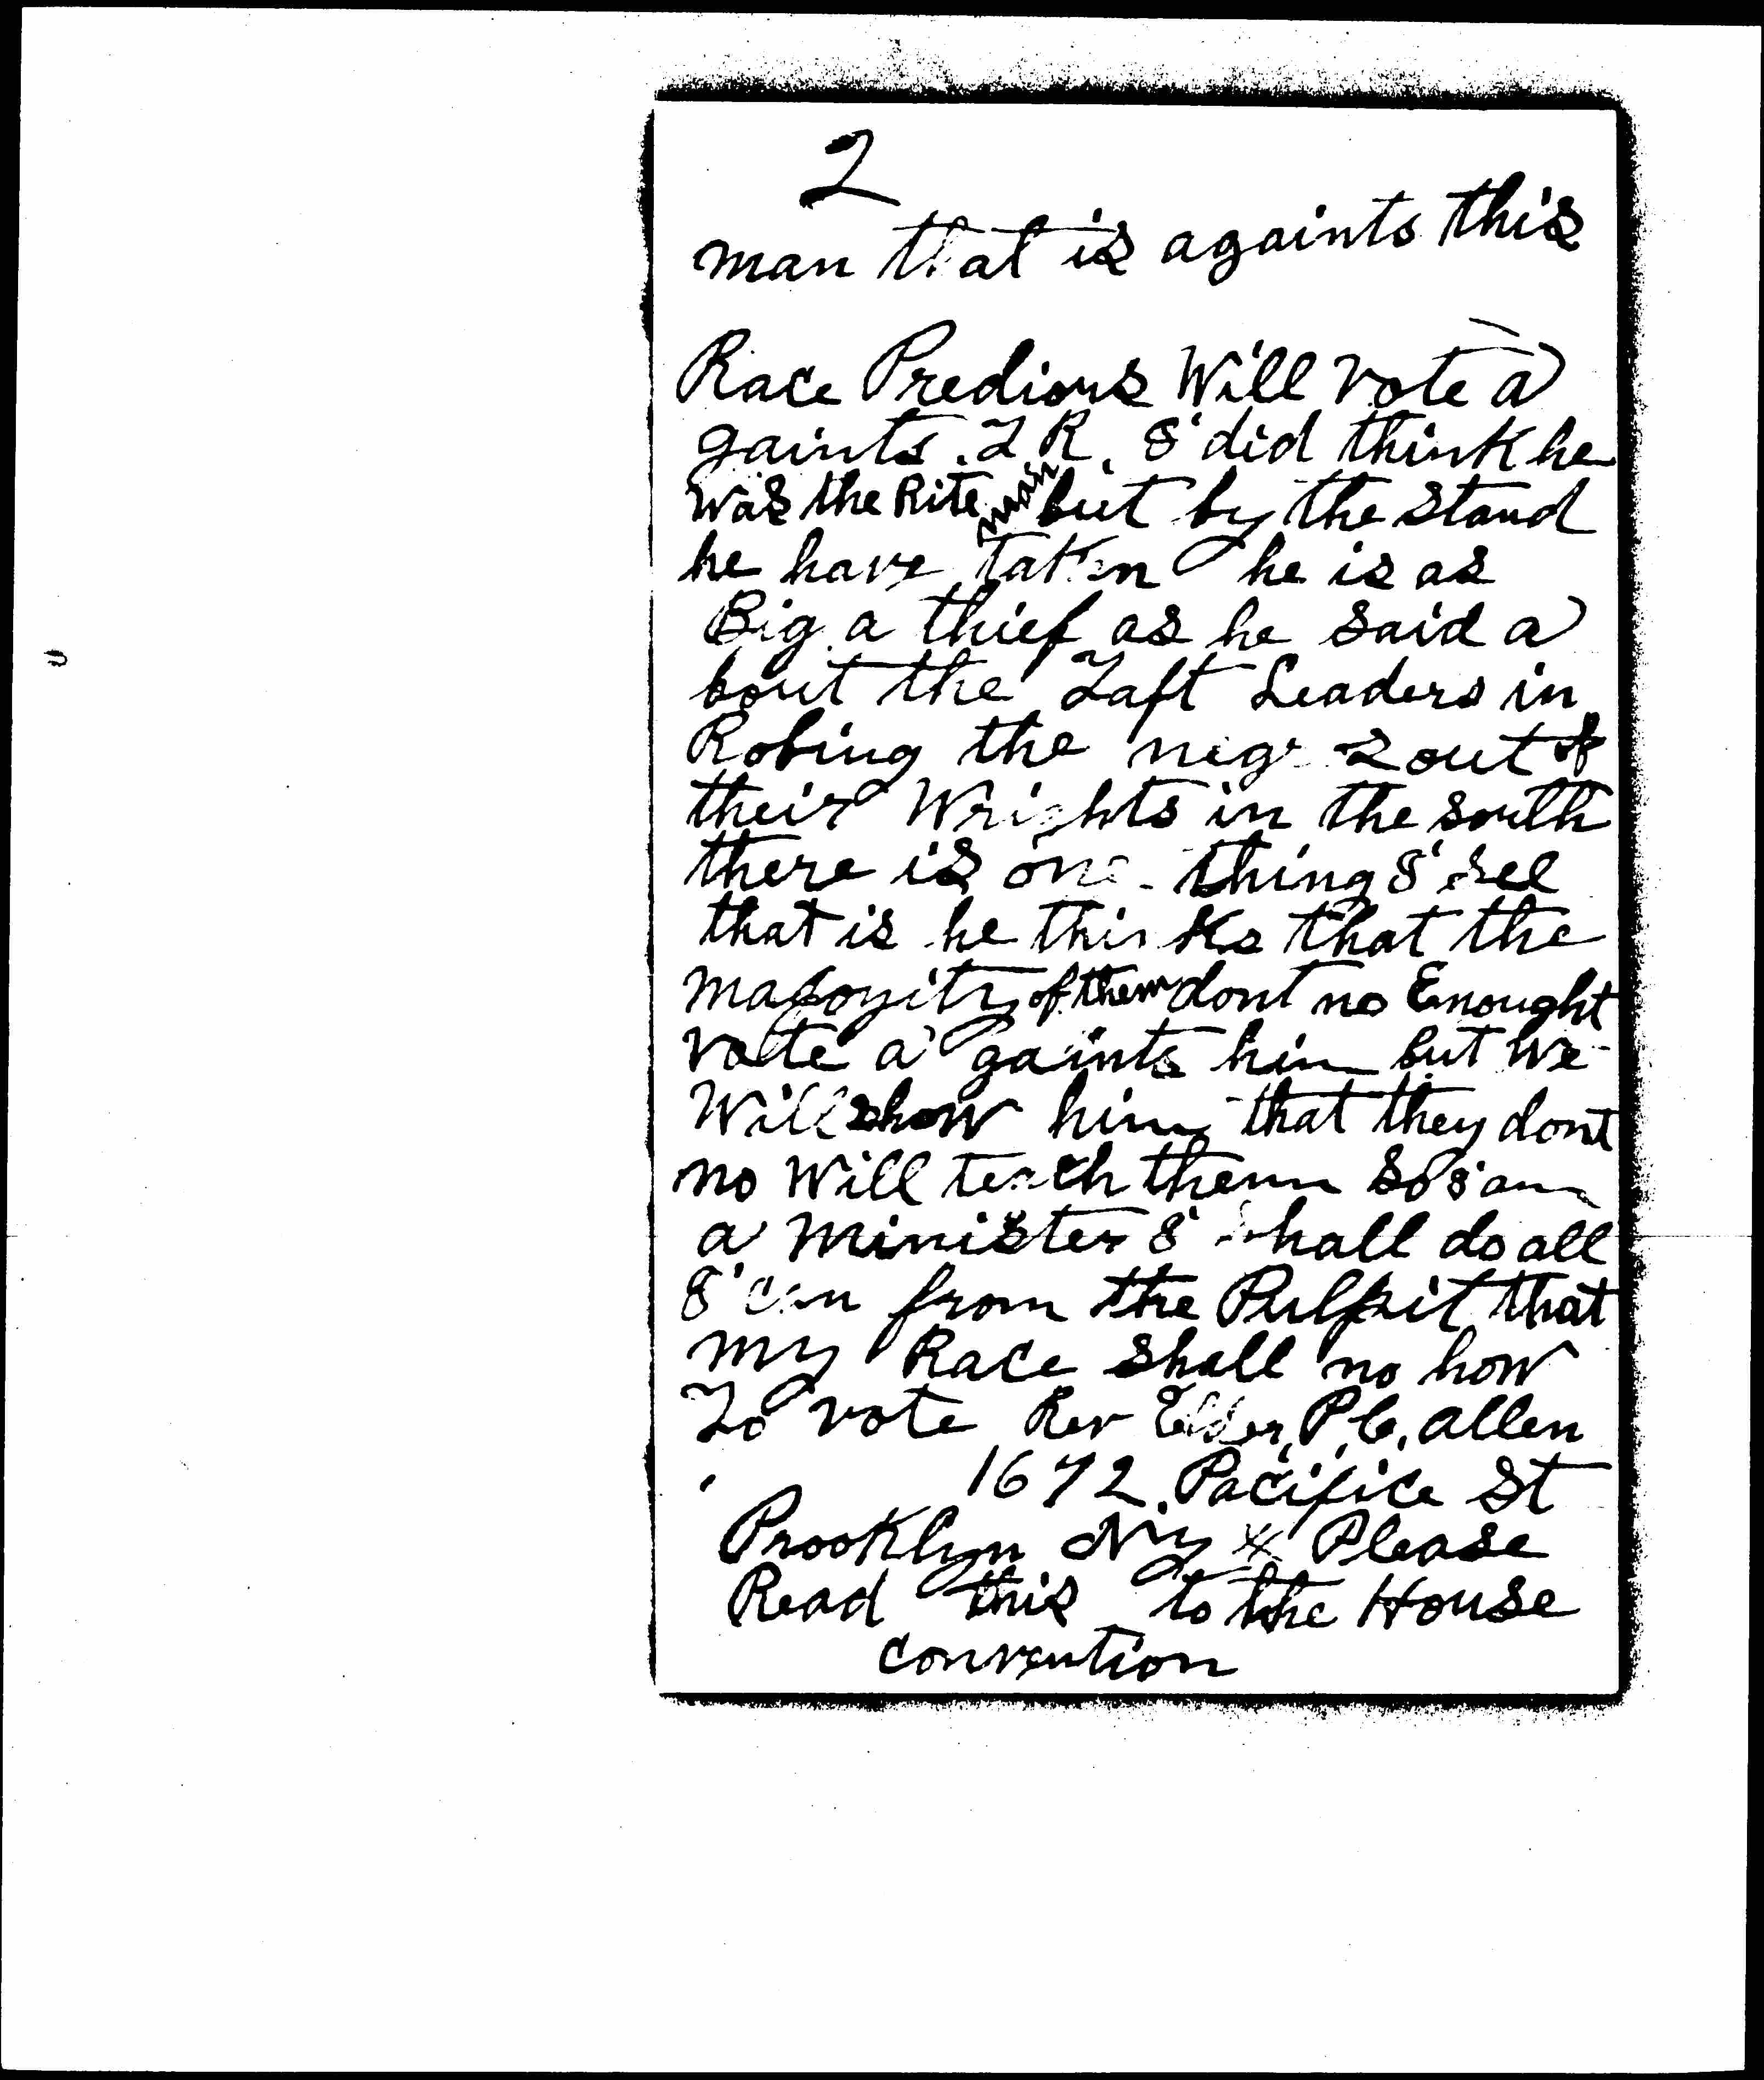 2
man that is againts this
Race Predious Will vote a
gaints. T R. I did think he
was the Rite man but by the stand
he have taken he is as
Big a thief as he said a
bout the Taft Leaders in
Robing the out of
their Wrights in the south
there is one thing I see
that is he thinks that the
majoyity of them dont no Enought
vote a gaints him but we
Will show him that they dont
no Will teach them So I am
a minister I shall do all
I can from the Pulpit that
my Race shall no how
To vote Rev Elder, P. C. Allen
1672. Pacifice St
Brooklyn N.y x Please
Read this to the House
convention